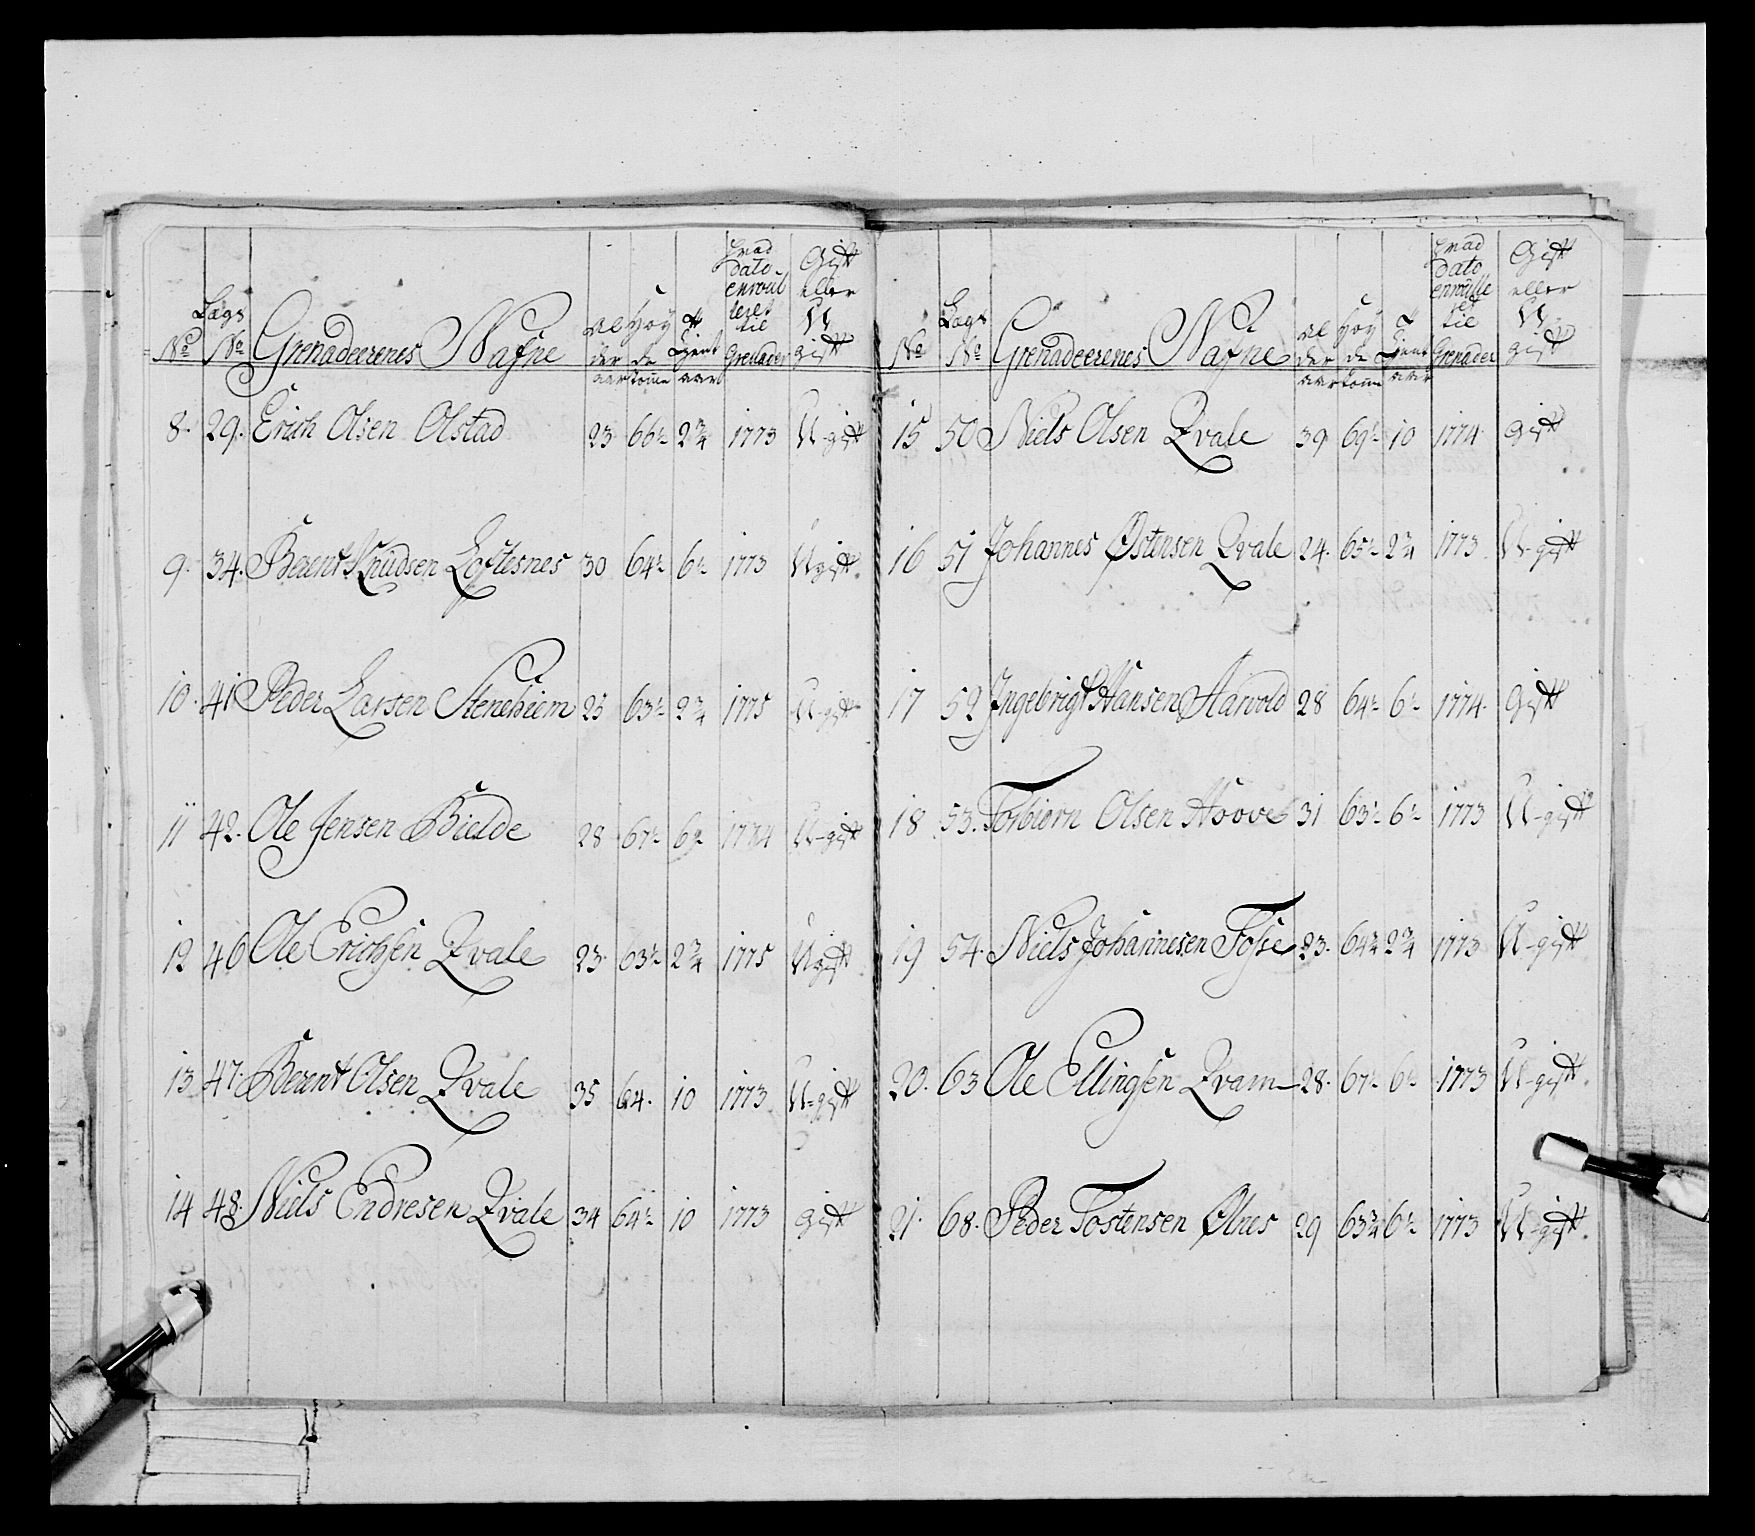 No Lægs No Grenadeerenes Nafne Al der aar Høy de tome Tient aar Hvad dato enroulleret til Grenader Gift eller U gift
8. 29. Erich Olsen Olstad 23 66½ 2¾ 1773 U-gift
9. 34. Berent Knudsen Loftesnes 30 64½ 6½ 1773 Ugift.
10. 41 Peder Larsen Stenehiem 25 63½ 2¾ 1775 U-gift
11 42. Ole Jensen Bielde 28 67½ 6½ 1774 U-gift
12 46 Ole Erichsen Qvale 23. 63½ 2¾ 1775 Ugift
13 47. Berent Olsen Qvale 35 64. 10 1773 U-gift
14 48. Niels Endresen Qvale 34 64½ 10 1773 gift
No Lægs No Grenadeerenes Nafne Al der aar Høy de tome Tient aar Hvad dato enroulleret til Grenader Gift eller U gift
15 50 Niels Olsen Qvale 39 69½ 10 1774 gift
16 51 Johannes Østensen Qvale 24. 65½ 2¾ 1773. U-gift
17 52 Ingebrigt Hansen Aarvold 28 64½ 6½ 1774. Gift
18 53. Torbiørn Olsen Hoove 31 63½ 6½ 1773 U-gift
19 54. Niels Johannesen Fosse 23. 64¾ 2¾ 1773 U-gift
20. 63 Ole Ellingsen Qvam 28. 67½ 6½ 1773 U-gift.
21. 68. Peder Tostensen Ølnes 29 63¾ 6½ 1773 U-gift.